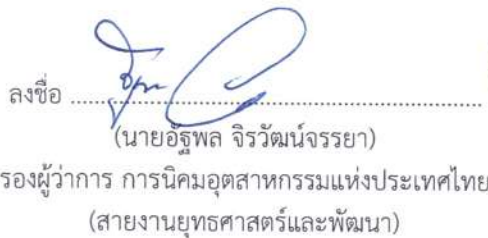 ลงชื่อ ........................................................
(นายอัฐพล จิรวัฒน์จรรยา)
รองผู้ว่าการ การนิคมอุตสาหกรรมแห่งประเทศไทย
(สายงานยุทธศาสตร์และพัฒนา)